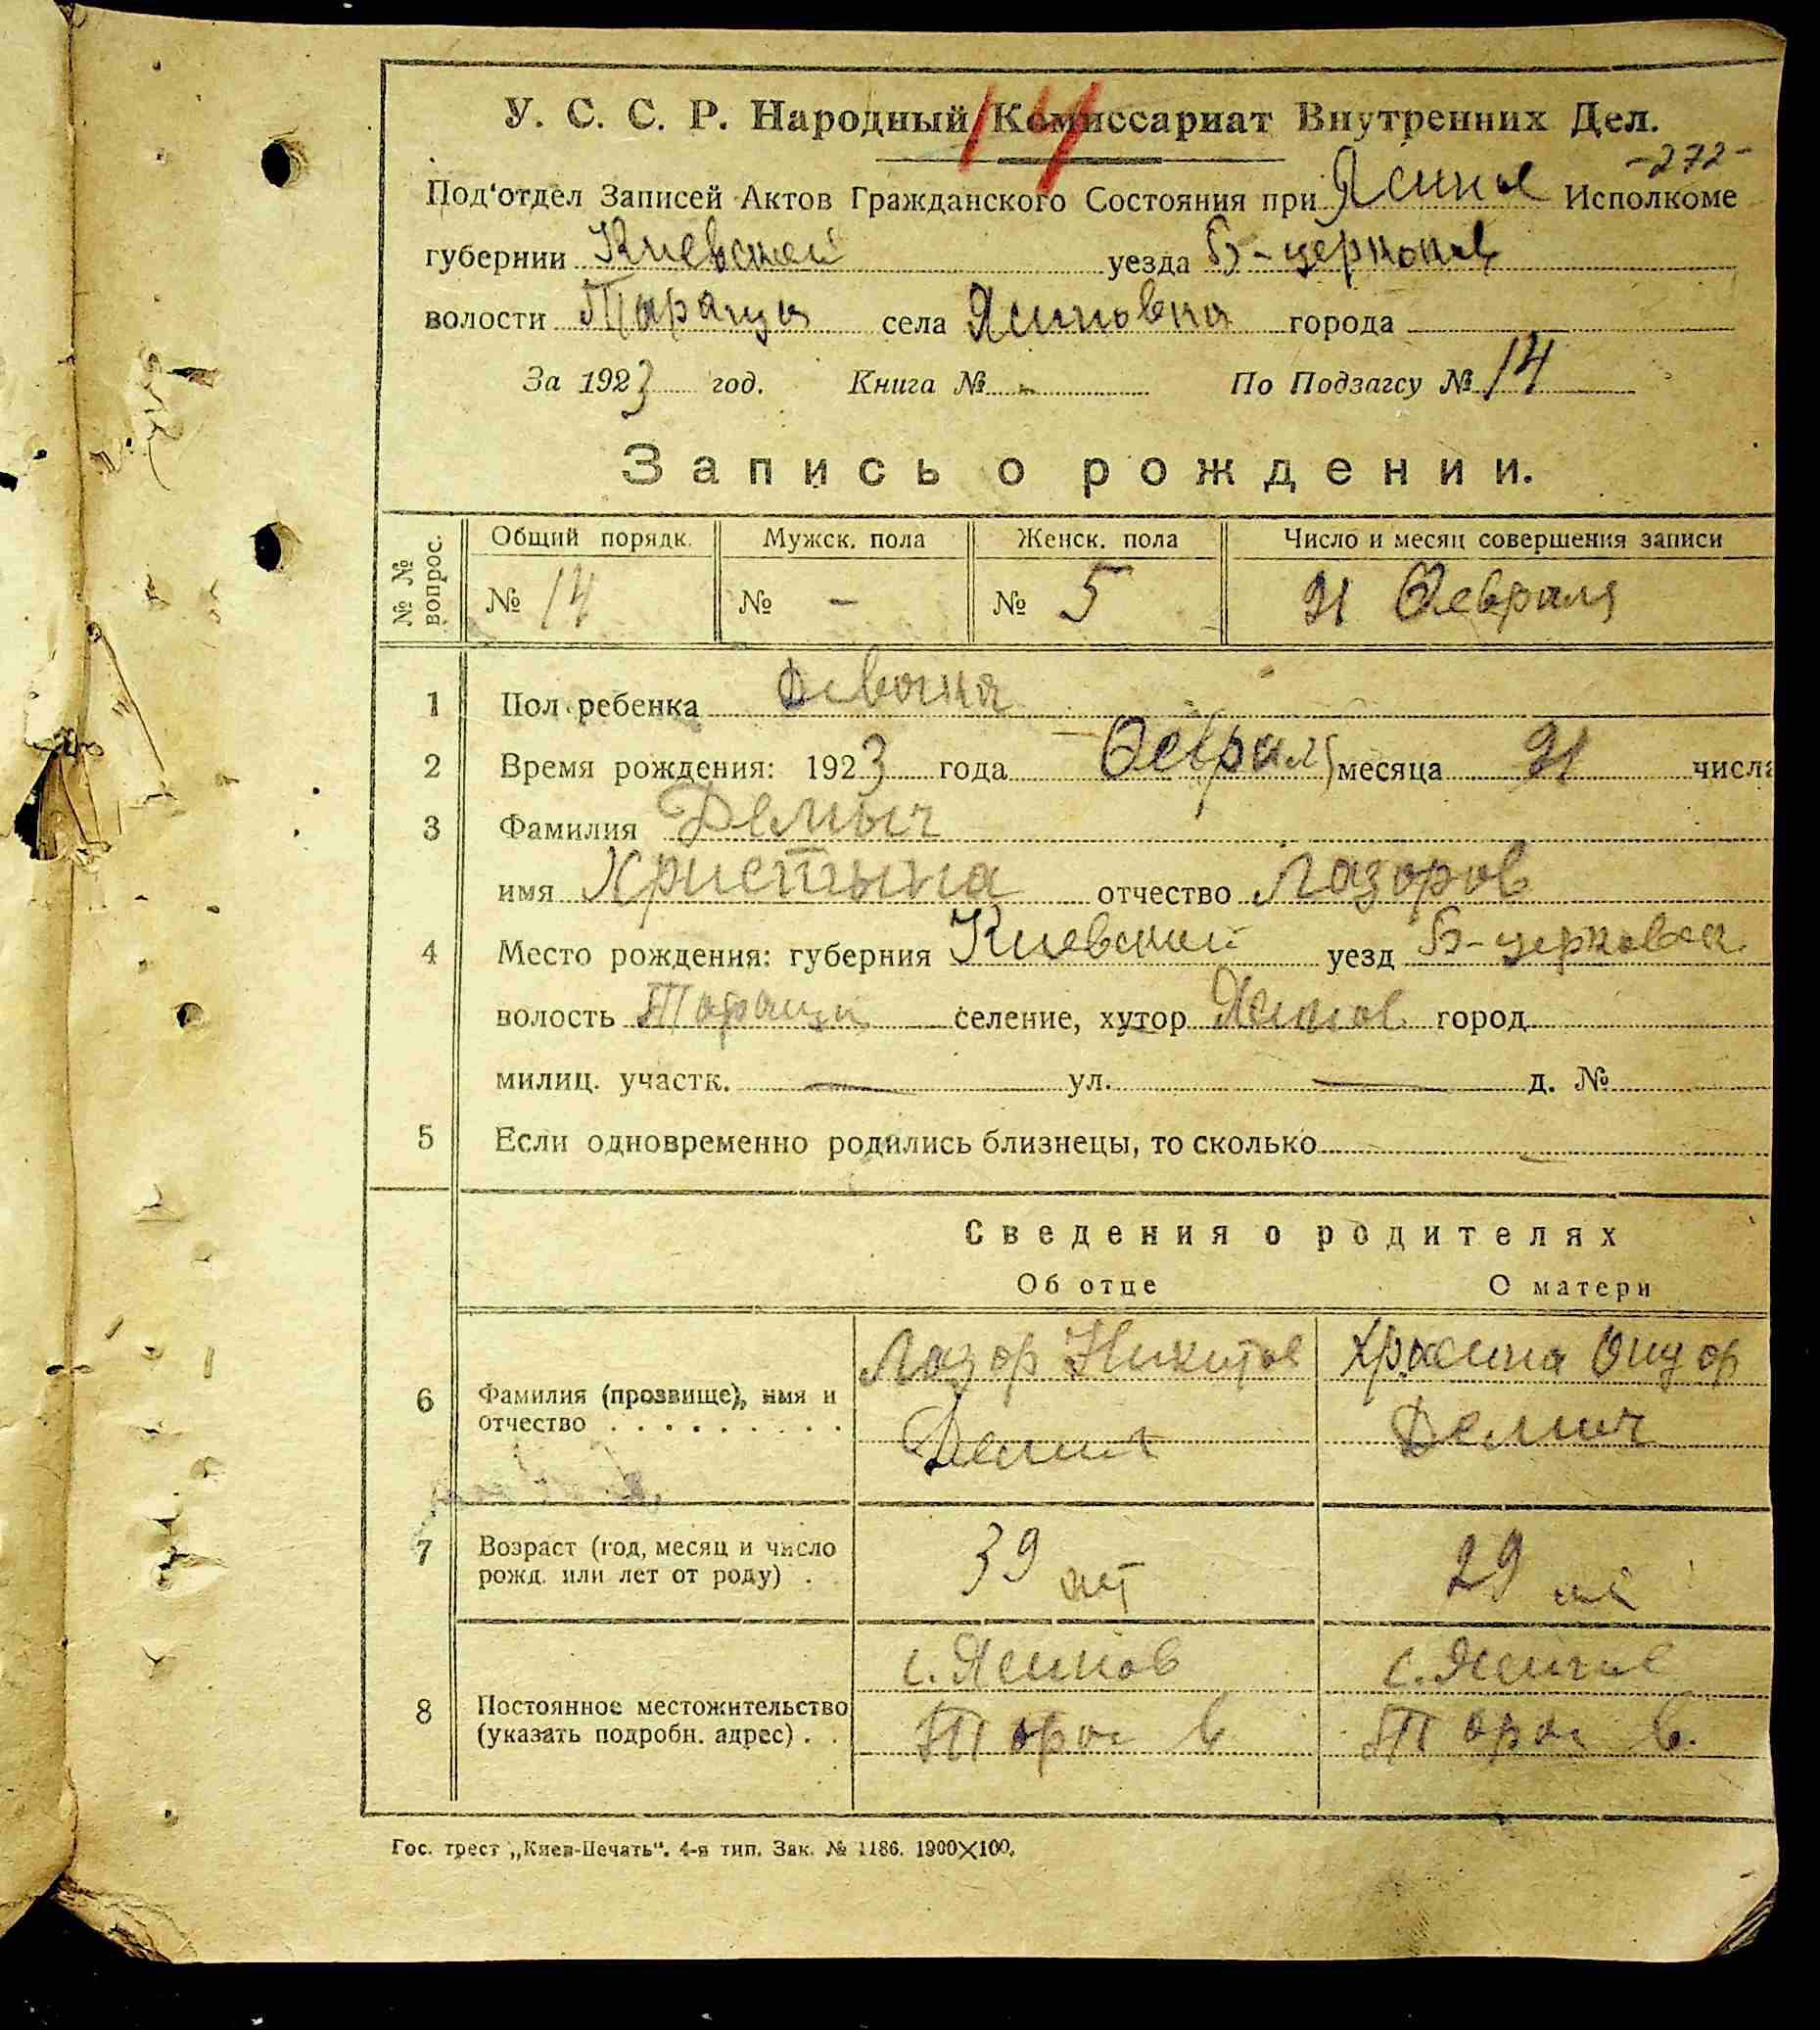 14
У. С. С. Р. Народный Комиссариат Внутренних Дел.
-272-
Под'отдел Записей Актов Гражданского Состояния при Ясинов Исполкоме
губернии Киевской уезда Б-церковск
волости Тараща села Ясиновка города
За 1923 год. Книга № - По Подзагсу № 14
Запись о рождении.
№ № вопрос.
Общий порядк. Мужск. пола Женск. пола Число и месяц совершения записи
№ 14 № - № 5 21 Февраля
1 Пол ребенка Девочка
2 Время рождения: 1923 года Февраля месяца 21 числа
3 Фамилия Демыч
имя Христына отчество Лазоров
4 Место рождения: губерния Киевской уезд Б-церковск
волость Таращи селение, хутор Ясинов город
милиц. участк. — ул. — д. №
5 Если одновременно родились близнецы, то сколько -
Сведения о родителях
Об отце О матери
6 Фамилия (прозвище), имя и отчество
Лазор Никитов Демич
Демич
7 Возраст (год, месяц и число рожд. или лет от роду)
39 лет 29 лет
8 Постоянное местожительство (указать подробн. адрес)
с. Ясинов с. Ясинов
Тара в Тара в.
Гос. трест „Киев-Печать“. 4-я тип. Зак. № 1186. 1900×100.